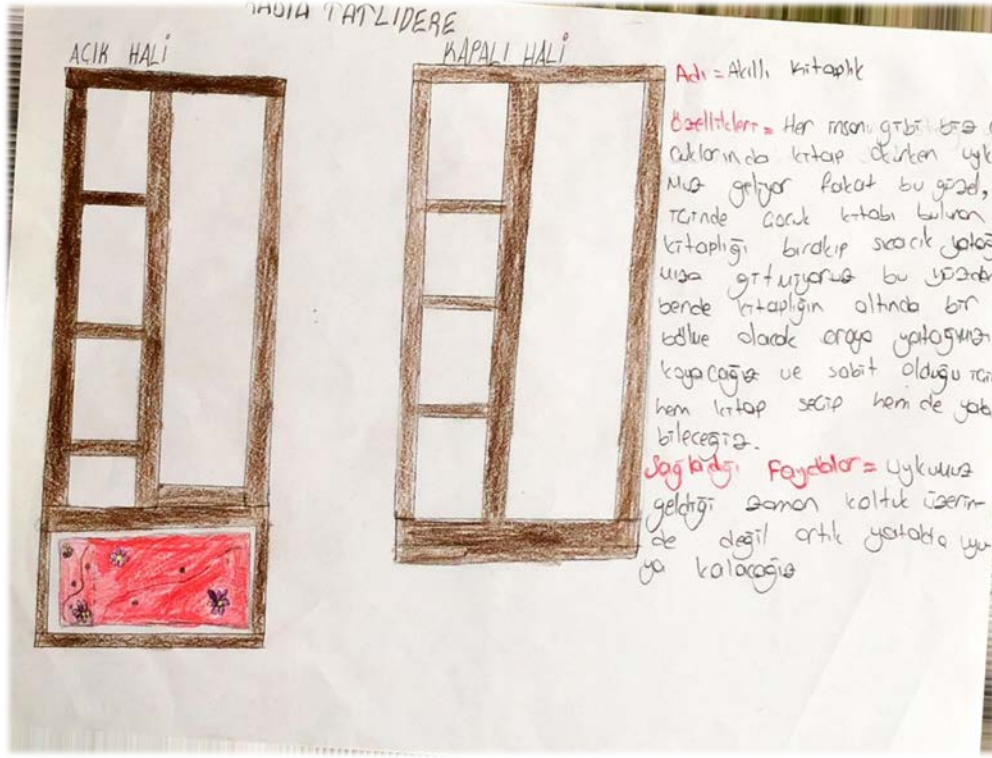 TATLIDERE
AÇIK HALİ
KAPALI HALİ
Adı = Akıllı Kitaplık
Özellikleri = Her insan gibi biz
cuklarında kitap okurken uyk
muz geliyor fakat bu güzel,
içinde çocuk kitabı bulunan
kitaplığı bırakıp sıcacık yatağ
mıza gitmiyoruz bu yüzden
bende kitaplığın altında bir
bölme olarak oraya yatağımız
koyacağız ve sabit olduğu için
hem kitap seçip hem de yata
bileceğiz.
Sağladığı Faydalar = Uykumuz
geldiği zaman koltuk üzerin-
de değil artık yatakta uyu
ya kalacağız